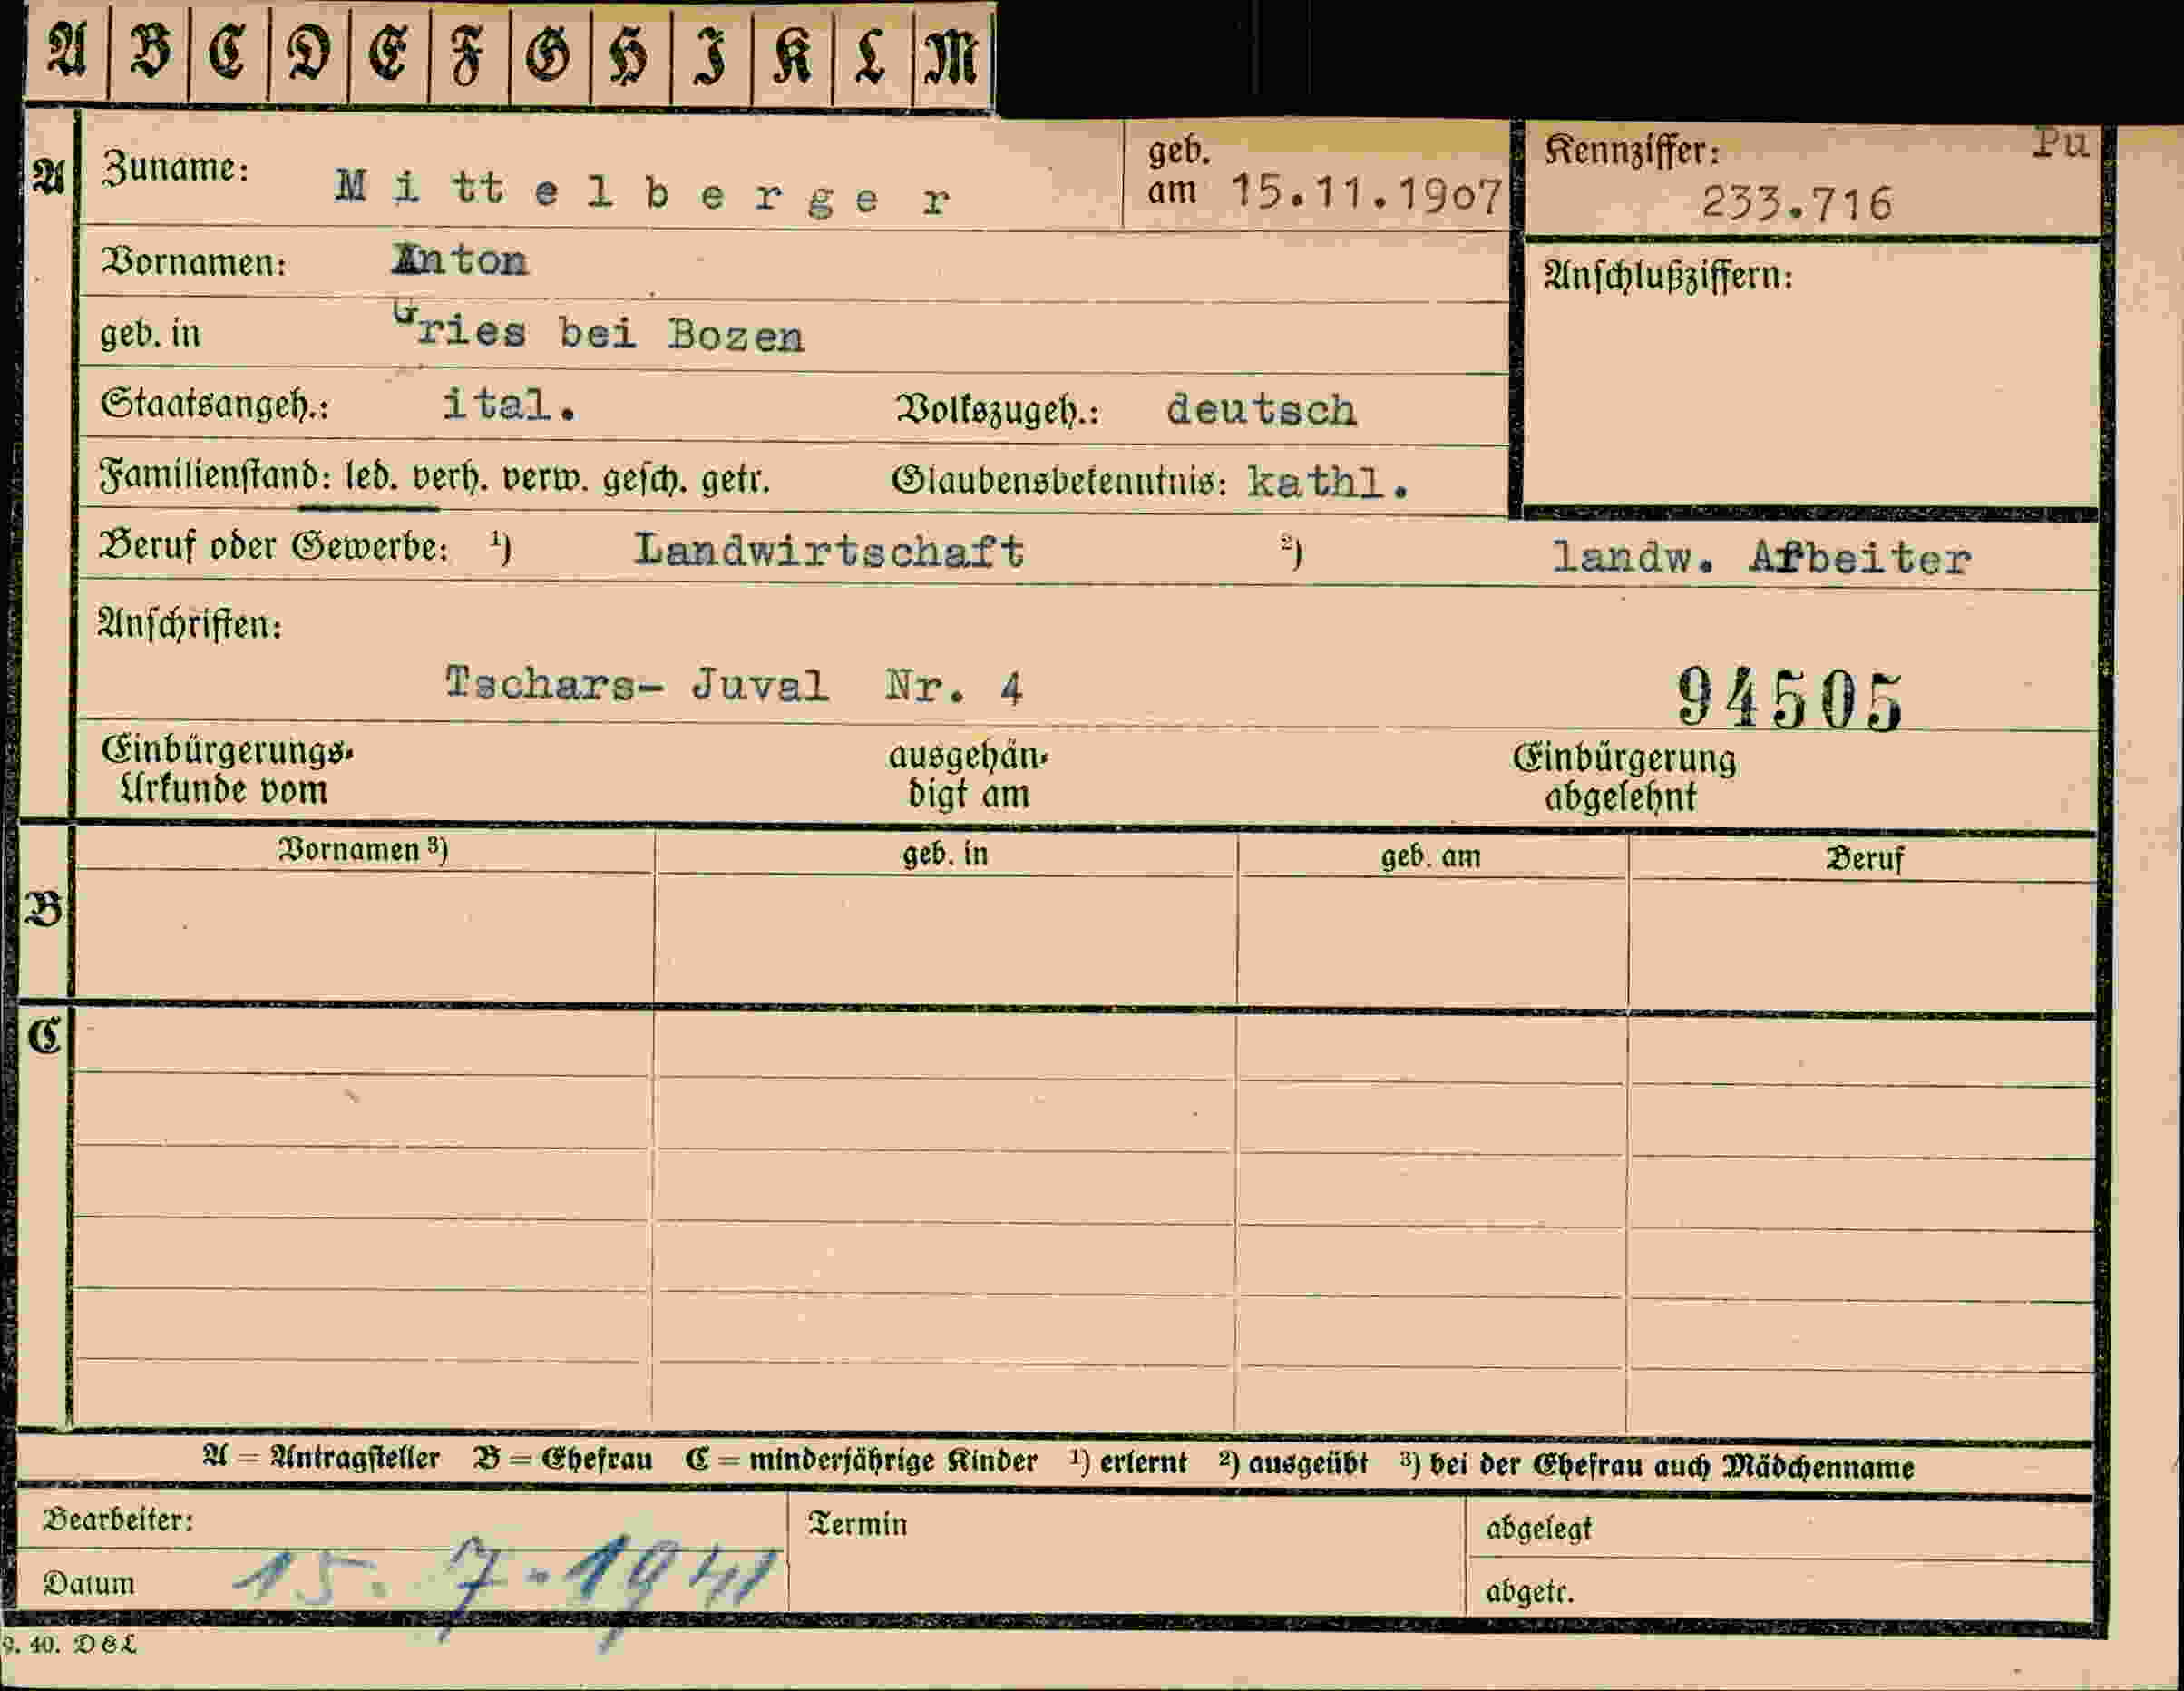 A B C D E F G H I K L M
A Zuname: Mittelberger geb. am 15.11.1907 Kennziffer: 233.716 Pu
Vornamen: Anton Anschlußziffern:
geb. in Gries bei Bozen
Staatsangeh.: ital. Volkszugeh.: deutsch
Familienstand: led. verh. verw. gesch. getr. Glaubensbekenntnis: kathl.
Beruf oder Gewerbe: 1) Landwirtschaft 2) landw. Arbeiter
Anschriften:
Tschars- Juval Nr. 4 94505
Einbürgerungs- ausgehän- Einbürgerung
Urkunde vom digt am abgelehnt
Vornamen 3) geb. in geb. am Beruf
B
C
A = Antragsteller B = Ehefrau C = minderjährige Kinder 1) erlernt 2) ausgeübt 3) bei der Ehefrau auch Mädchenname
Bearbeiter: Termin abgelegt
Datum 15.7.1941 abgetr.
9. 40. D&L